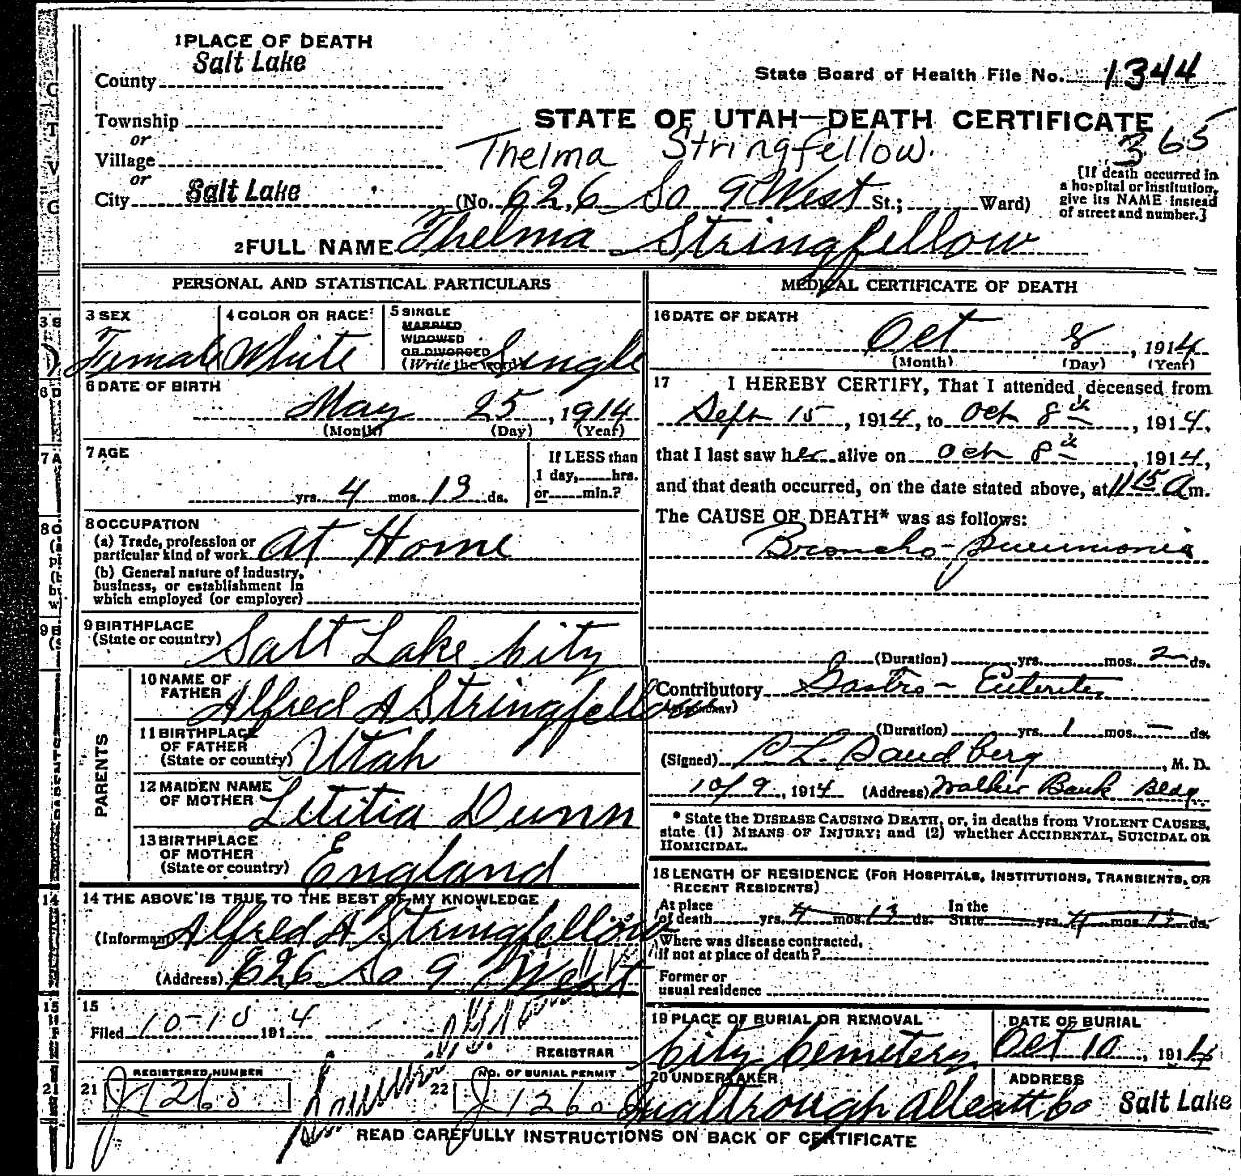 1 PLACE OF DEATH
County Salt Lake
State Board of Health File No. 1344
Township
or
Village
or
City Salt Lake
STATE OF UTAH—DEATH CERTIFICATE
365
Thelma Stringfellow.
(No. 626 So 9 West St.; Ward)
[If death occurred in a hospital or institution, give its NAME instead of street and number.]
2 FULL NAME Thelma Stringfellow
PERSONAL AND STATISTICAL PARTICULARS
3 SEX Female
4 COLOR OR RACE White
5 SINGLE MARRIED WIDOWED OR DIVORCED (Write the word) Single
6 DATE OF BIRTH
May 25, 1914
(Month) (Day) (Year)
7 AGE
yrs. 4 mos. 13 ds.
If LESS than 1 day, hrs. or min.?
8 OCCUPATION
(a) Trade, profession or particular kind of work At Home
(b) General nature of industry, business, or establishment in which employed (or employer)
9 BIRTHPLACE (State or country) Salt Lake City
PARENTS
10 NAME OF FATHER Alfred A Stringfellow
11 BIRTHPLACE OF FATHER (State or country) Utah
12 MAIDEN NAME OF MOTHER Letitia Dunn
13 BIRTHPLACE OF MOTHER (State or country) England
14 THE ABOVE IS TRUE TO THE BEST OF MY KNOWLEDGE
(Informant) Alfred A Stringfellow
(Address) 626 So 9 West
15
Filed 10-10 1914
REGISTRAR
21 REGISTERED NUMBER J1265
22 NO. OF BURIAL PERMIT J1260
MEDICAL CERTIFICATE OF DEATH
16 DATE OF DEATH
Oct 8, 1914
(Month) (Day) (Year)
17 I HEREBY CERTIFY, That I attended deceased from
Sept 15, 1914, to Oct 8th, 1914,
that I last saw her alive on Oct 8th, 1914,
and that death occurred, on the date stated above, at 11 15 a m.
The CAUSE OF DEATH* was as follows:
Broncho-pneumonia
(Duration) yrs. mos. 2 ds.
Contributory Gastro-Enteritis
(SECONDARY)
(Duration) yrs. 1 mos. — ds.
(Signed) Sandberg, M. D.
10/9, 1914 (Address) Walker Bank Bldg.
* State the DISEASE CAUSING DEATH, or, in deaths from VIOLENT CAUSES, state (1) MEANS OF INJURY; and (2) whether ACCIDENTAL, SUICIDAL OR HOMICIDAL.
18 LENGTH OF RESIDENCE (FOR HOSPITALS, INSTITUTIONS, TRANSIENTS, OR RECENT RESIDENTS)
At place of death yrs. 4 mos. 13 ds. In the State yrs. 4 mos. 13 ds.
Where was disease contracted, if not at place of death?
Former or usual residence
19 PLACE OF BURIAL OR REMOVAL
City Cemetery
DATE OF BURIAL
Oct 10, 1914
20 UNDERTAKER
ADDRESS
Salt Lake
READ CAREFULLY INSTRUCTIONS ON BACK OF CERTIFICATE